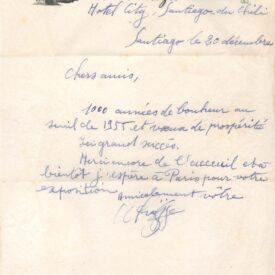 Hotel City. Santiago du Chili
Santiago le 20 décembre
Chers amis,
1000 années de bonheur au
seuil de 1955 et vœux de prospérité
grand succès.
Merci encore de l'accueil et à
bientôt j'espère à Paris pour votre
exposition
Amicalement vôtre